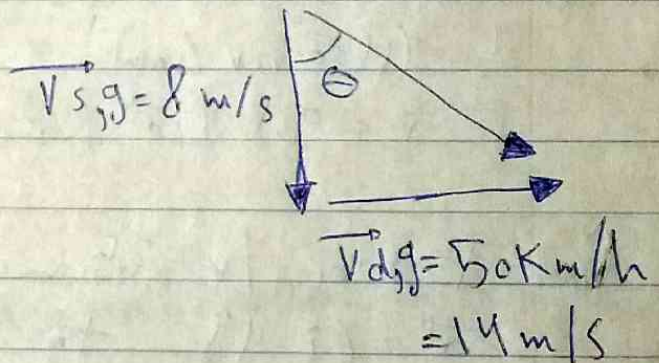 Vs,g = 8 m/s
θ
Vd,g = 50 Km/h
= 14 m/s